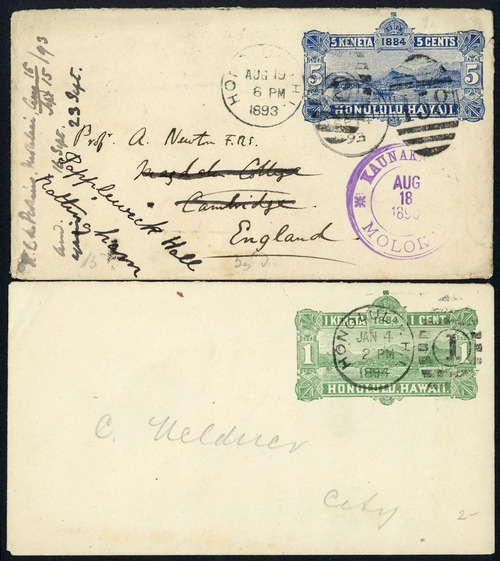 5 KENETA 1884 5 CENTS
5 5
HONOLULU, HAWAII.
AUG 19
6 PM
1893
Prof. A. Newton F.R.S.
Magdalen College
Cambridge
England.
Papplewick Hall
Nottingham
Aug 15 /93
Sept.
23 Sept.
and
KAUNAK
AUG
18
MOLOK
1 KENETA 1884 1 CENT
1 1
HONOLULU, HAWAII.
HONOLULU
JAN 4
2 PM
1894
C.
City
2-